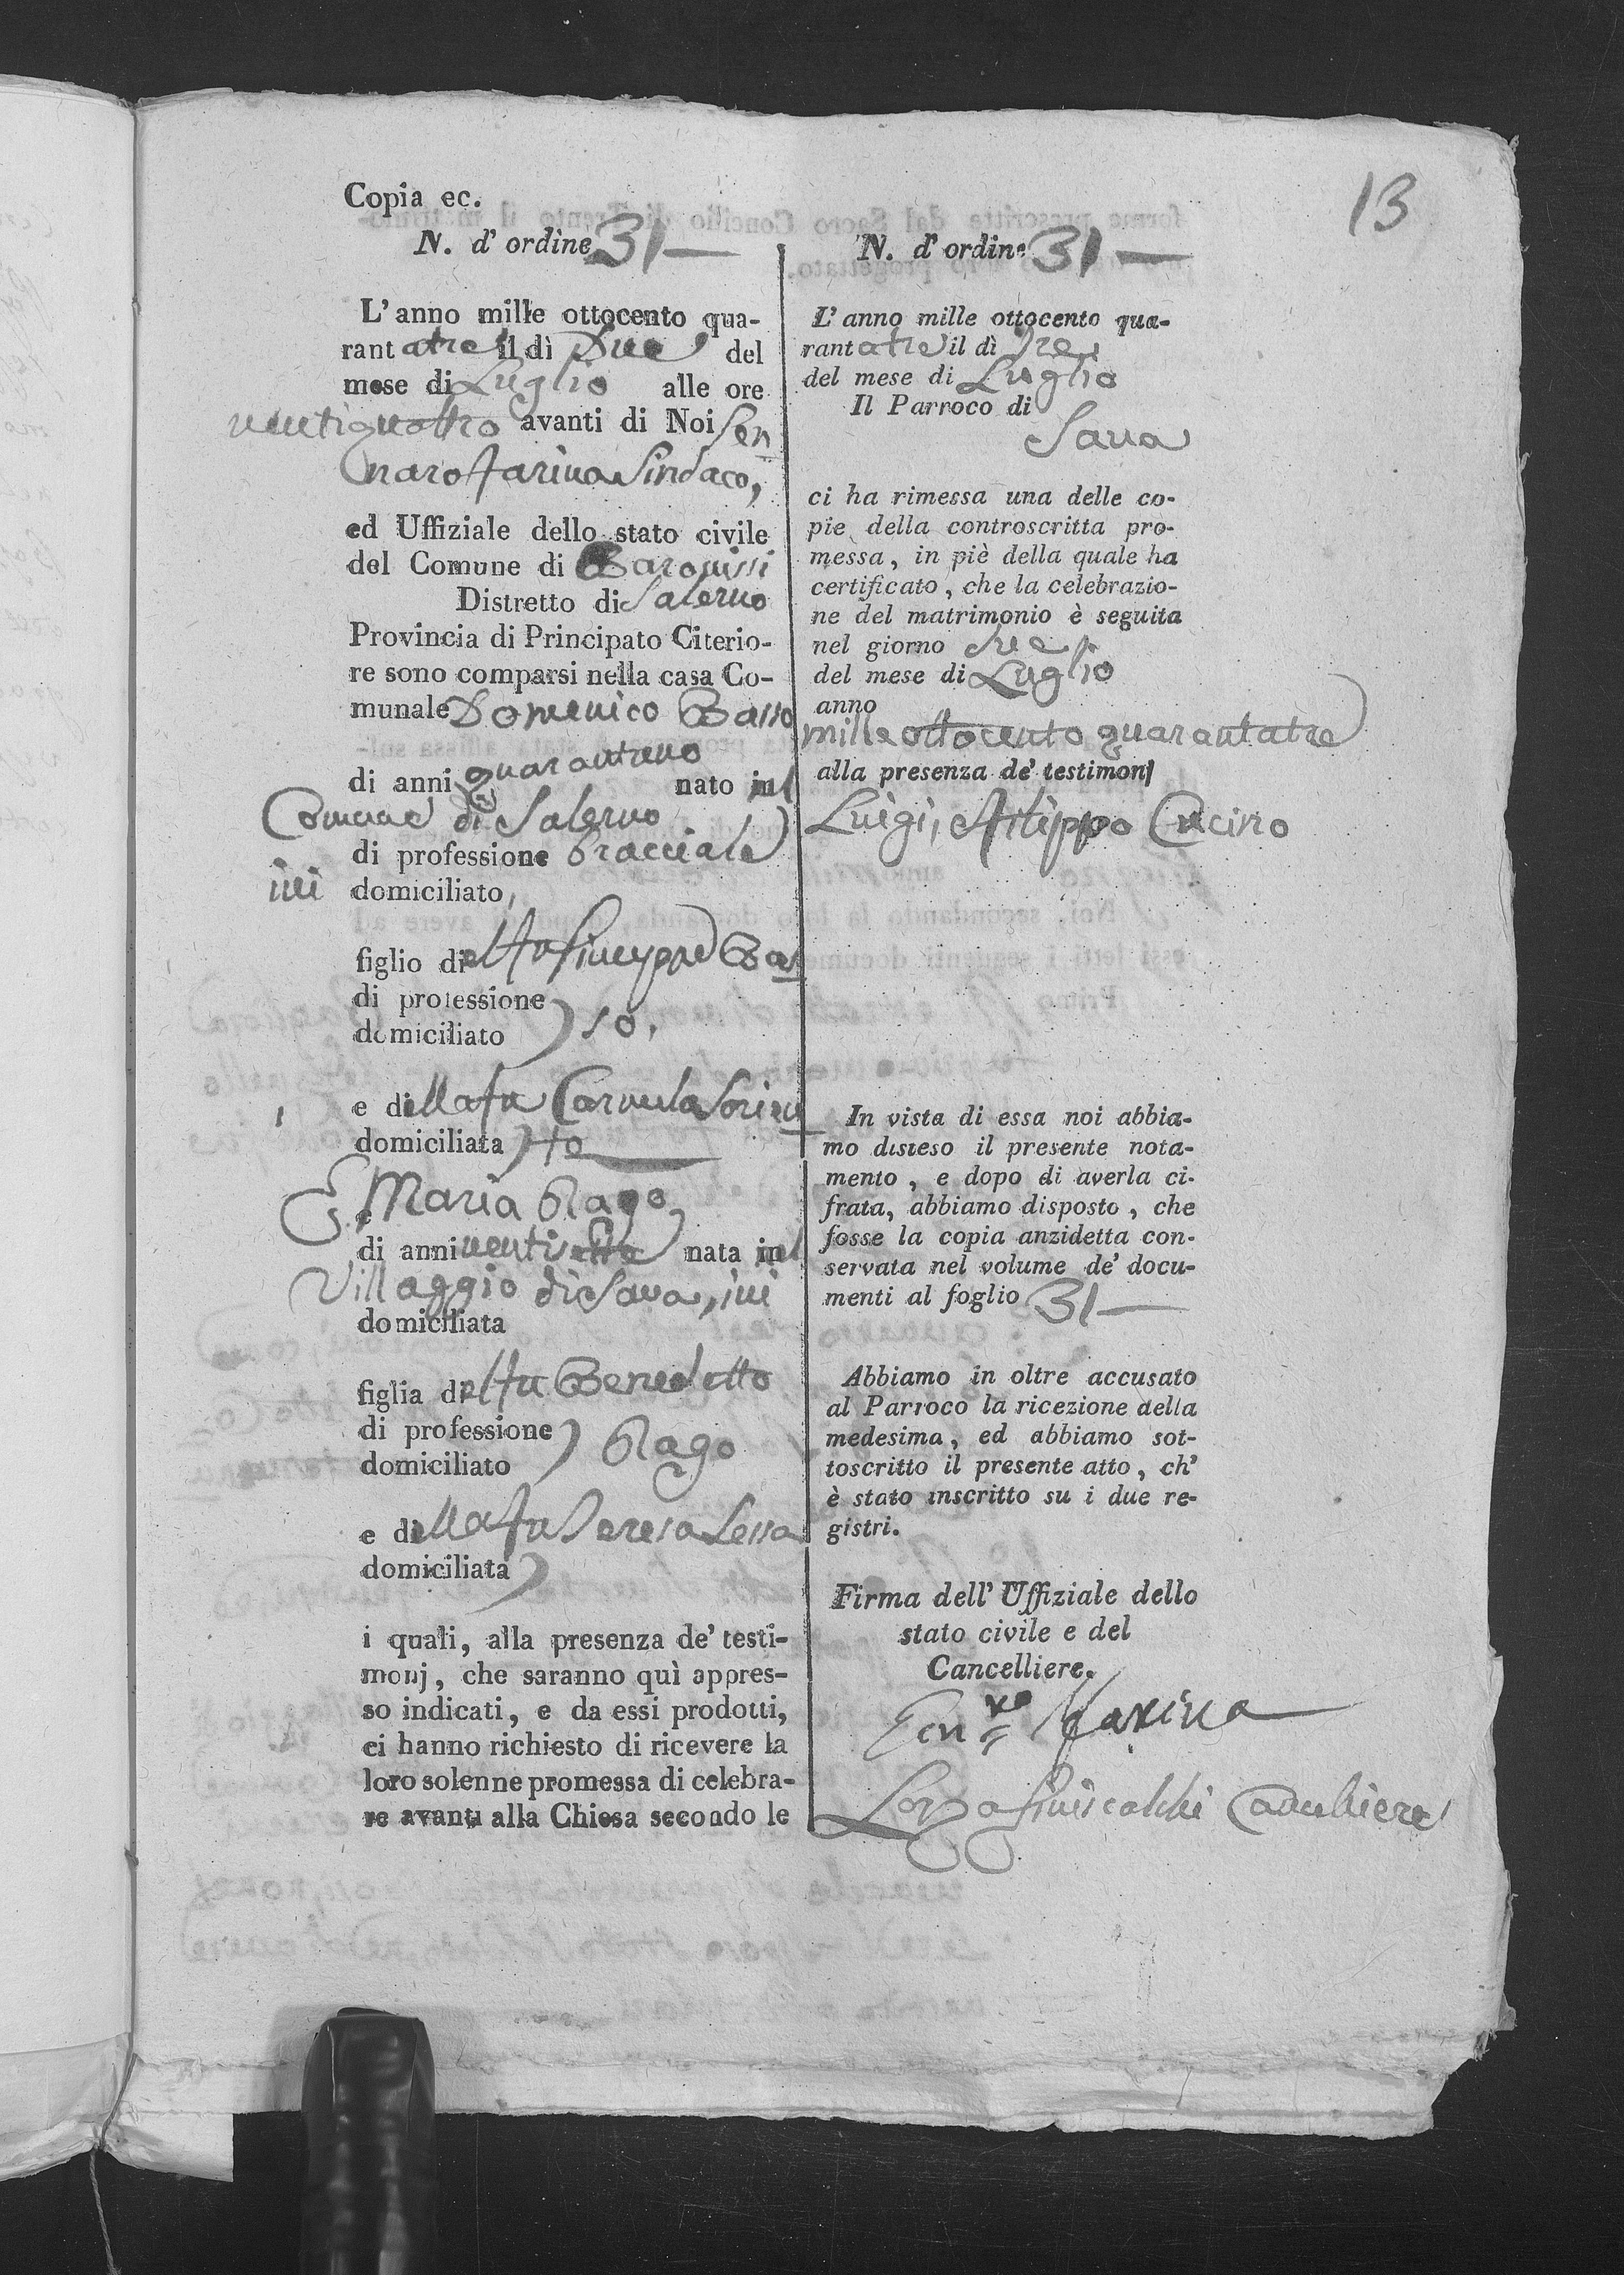 13
Copia ec.
N. d' ordine 31
L'anno mille ottocento qua-
rantatre il dì Due del
mese di Luglio alle ore
ventiquattro avanti di Noi Gen
naro Farina Sindaco,
ed Uffiziale dello stato civile
del Comune di Baronissi
Distretto di Salerno
Provincia di Principato Citerio-
re sono comparsi nella casa Co-
munale Domenico Basso
di anni quarantuno nato nel
Comune di Salerno
di professione bracciale
ivi domiciliato,
figlio del fu Giuseppe Bas
di professione
domiciliato so.
e della fu Carmela Sorien
domiciliata to
E Maria Rago
di anni nata nel
Villaggio di Sava, ivi
domiciliata
figlia del fu Benedetto
di professione
domiciliato Rago
e della fu Teresa Lessa
domiciliata
i quali, alla presenza de' testi-
monj, che saranno quì appres-
so indicati, e da essi prodotti,
ci hanno richiesto di ricevere la
loro solenne promessa di celebra-
re avanti alla Chiesa secondo le
N. d' ordine 31
L' anno mille ottocento qua-
rantatre il dì Tre
del mese di Luglio
Il Parroco di
Sava
ci ha rimessa una delle co-
pie della controscritta pro-
messa, in piè della quale ha
certificato, che la celebrazio-
ne del matrimonio è seguita
nel giorno
del mese di Luglio
anno
mille ottocento quarantatre
alla presenza de' testimonj
Luigi, Filippo
In vista di essa noi abbia-
mo disteso il presente nota-
mento, e dopo di averla ci-
frata, abbiamo disposto, che
fosse la copia anzidetta con-
servata nel volume de' docu-
menti al foglio 31
Abbiamo in oltre accusato
al Parroco la ricezione della
medesima, ed abbiamo sot-
toscritto il presente atto, ch'
è stato inscritto su i due re-
gistri.
Firma dell' Uffiziale dello
stato civile e del
Cancelliere.
Genro Farina
Cancelliere